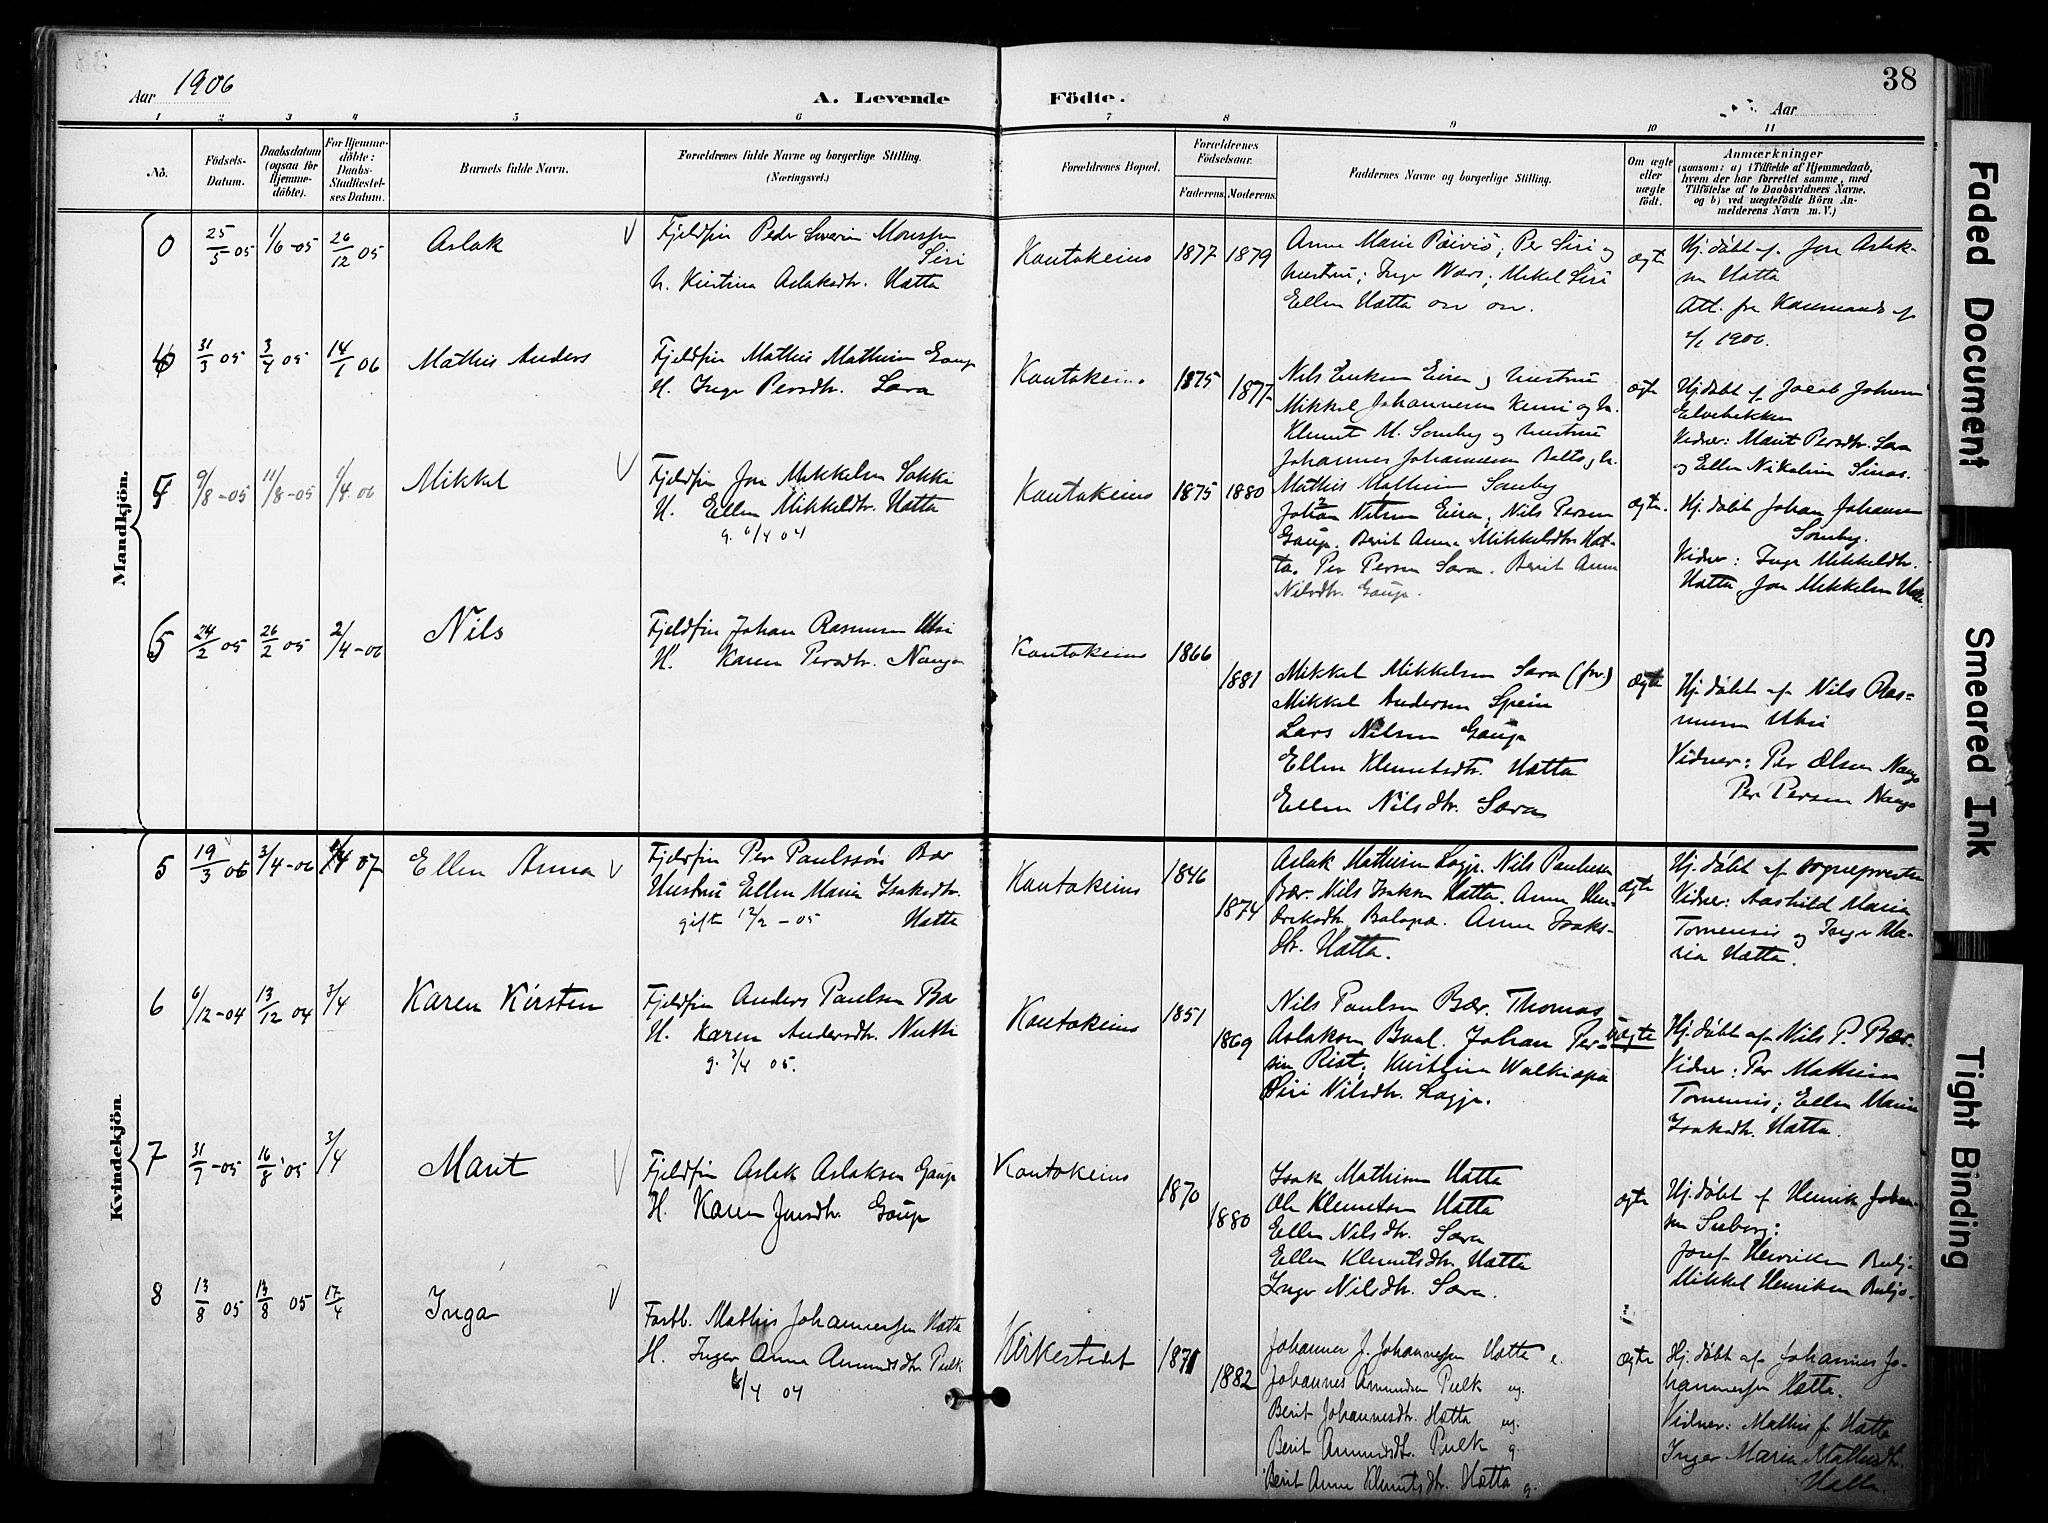 38
Aar 1906
A. Levende Födte.
Aar
1 2 3 4 5 6 7 8 9 10 11
No.
Födsels-
Datum.
Daabsdatum
(ogsaa för
Hjemme-
döbte).
For Hjemme-
döbte:
Daabs-
Stadfæstel-
ses Datum.
Barnets fulde Navn.
Forældrenes fulde Navne og borgerlige Stilling.
(Næringsvei.)
Forældrenes Bopæl.
Forældrenes
Födselsaar.
Faderens. Moderens.
Faddernes Navne og borgerlige Stilling.
Om ægte
eller
uægte
født.
Anmærkninger
(saasom: a) i Tilfælde af Hjemmedaab,
hvem der har forrettet samme, med
Tilföielse af to Daabsvidners Navne,
og b) ved uægtefödte Börn An-
melderens Navn m. V.)
Mandkjön.
0 25/5 05 1/6-05 26/12 05 Aslak
Fjeldfin Peder Monsen
Siri
Aslaksdtr. Hætta
Kautokeino 1877 1879
Anne Marie Päiviö; Per Siri og
hustru; Inge; Mikel Siri
Ellen Hætta
ægte
Hj. döbt af Jon Aslak-
sen Hætta
1906.
31/3 05 14/1 06 Mathis Anders
Fjeldfin Mathis Mathisen Gaup
H. Inge Persdtr. Sara
Kautokeino 1875 1877
Nils Eriksen Eira og hustru
Mikkel Johannesen Kemi og h.
Klemet M. Somby og hustru
Johannes Johannesen Balto og h.
Mathis Mathisen Somby
ægte
Hj. döbt af Jacob Johnsen
Elvebakken
Vidner: Marit Persdtr. Sara
og Ellen
4 9/8-05 11/8-05 1/4 06 Mikkel
Fjeldfin Jon Mikkelsen Sokki
H. Ellen Mikkelsdtr. Hætta
g. 6/4 04
Kautokeino 1875 1880
Johan Nilsen Eira, Nils Persen
Gaup. Berit Anna Mikkelsdtr. Hæt-
ta. Per Persen Sara. Berit Anna
Nilsdtr. Gaup.
ægte.
Hj. döbt Johan Johansen
Somby.
Vidner: Inga Mikkelsdtr.
Hætta, Jon Mikkelsen Hætta.
5 24/2 05 26/2 05 2/4-06 Nils
Fjeldfin Johan Rasmussen Utsi
H. Karen Persdtr. Nango
Kautokeino 1866 1881
Mikkel Mikkelsen Sara
Mikkel Andersen Spein
Lars Nilsen Gaup
Ellen Klemetsdtr. Hætta
Ellen Nilsdtr. Sara
ægte
Hj. döbt af Nils Ras-
mussen Utsi
Vidner: Per Olsen Nango
Per Persen Nango
Kvindekjön.
5 19/3 06 3/4-06 07 Ellen Anna
Fjeldfin Per Paulssön Bær
Hustru Ellen Maria Isaksdtr.
gift 12/2-05 Hætta
Kautokeino 1846 1874
Aslak Mathisen Logje. Nils Paulsen
Bær. Nils Isaksen Hætta. Anna Hen-
driksdtr. Anne Isaks-
dtr. Hætta.
ægte
Hj. döbt af sognepresten
Vidner: Aashild Maria
Tornensis og Inger Ma-
ria Hætta.
6 6/12-04 13/12 04 3/4 Karen Kirsten
Fjeldfin Anders Paulsen Bær
H. Karen Andersdtr. Nutti
g. 3/4 05.
Kautokeino 1851 1869
Nils Paulsen Bær. Thomas
Aslaksen Baal. Johan Per-
sen Rist; Kristina Walkiapä
Siri Nilsdtr. Logje.
uægte
Hj. döbt af Nils P. Bær.
Vidner: Per Mathisen
Tornensis; Ellen Maria
Isaksdtr. Hætta.
7 31/7-05 16/8 05 3/4 Marit
Fjeldfin Aslak Aslaksen Gaup
H. Karen Jonsdtr. Gaup
Kautokeino 1870 1880
Isak Mathisen Hætta
Ole Klemetsen Hætta
Ellen Nilsdtr. Sara
Ellen Klemetsdtr. Hætta
Inge Nilsdtr. Sara.
ægte
Hj. döbt af Henrik Johan-
sen Suborg:
Josef Henriksen Buljo
Mikkel Henriksen Buljo.
8 13/8 05 13/8 05 17/4 Inga
Fastb. Mathis Johannessen Hætta
H. Inger Anna Amundsdtr. Pulk
6/4 04
Kirkestedet 1871 1882
Johannes J. Johannessen Hætta
Johannes Amundsen Pulk ug.
Berit Johannesdtr. Hætta ug.
Berit Amundsdtr. Pulk g.
Berit Anne Klemetsdtr. Hætta g.
ægte
Hj. döbt af Johannes Jo-
hannessen Hætta.
Vidner: Mathis J. Hætta
Inger Maria Mathisdtr.
Hætta.
Faded Document
Smeared Ink
Tight Binding